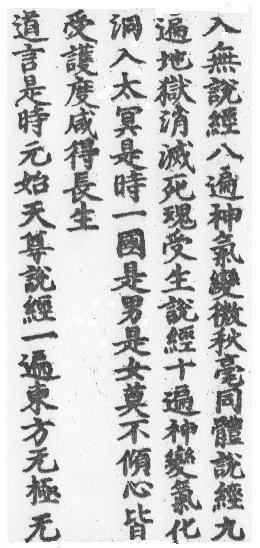 入無說經八遍神氣變微秋毫同體說經九
遍地獄消滅死魂受生說經十遍神變氣化
洞入太冥是時一國是男是女莫不傾心皆
受護度咸得長生
道言是時元始天尊說經一遍東方无極无